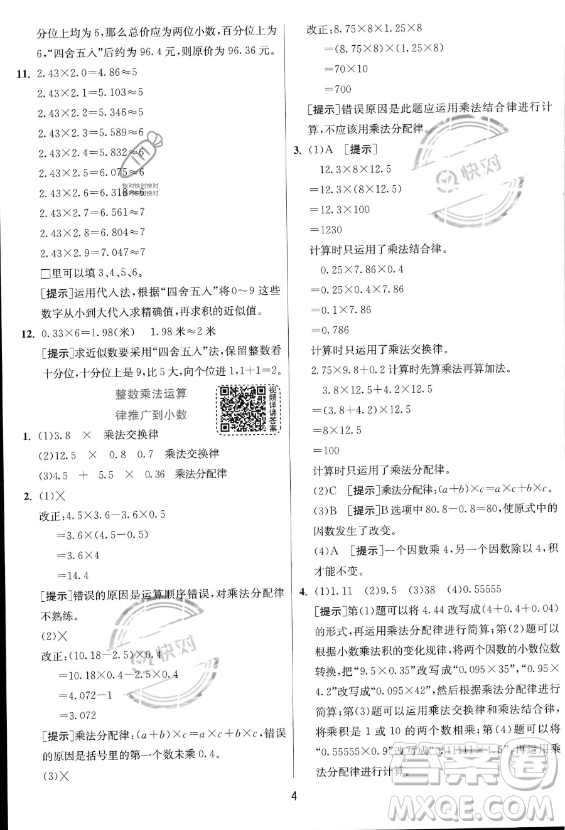 分位上均为6,那么总价应为两位小数,百分位上为
6,“四舍五入”后约为96.4元,则原价为96.36元。
11. 2.43×2.0=4.86≈5
2.43×2.1=5.103≈5
2.43×2.2=5.346≈5
2.43×2.3=5.589≈6
2.43×2.4=5.832≈6
2.43×2.5=6.075≈6
2.43×2.6=6.318≈6
2.43×2.7=6.561≈7
2.43×2.8=6.804≈7
2.43×2.9=7.047≈7
□里可以填3、4、5、6。
[提示]运用代入法,根据“四舍五入”将0~9这些
数字从小到大代入求精确值,再求积的近似值。
12. 0.33×6=1.98(米) 1.98米≈2.0米
[提示]求近似数要采用“四舍五入”法,保留整数看
十分位,十分位上是9,比5大,向个位进1,1+1=2。
整数乘法运算
律推广到小数
视频详讲答案
1. (1)3.8 × 乘法交换律
(2)12.5 0.8 乘法交换律
(3)4.5 + 5.5 × 0.36 乘法分配律
2. (1)×
改正:4.5×3.6-3.6×0.5
=3.6×(4.5-0.5)
=3.6×4
=14.4
[提示]错误的原因是运算顺序错误,对乘法分配律
不熟练。
(2)×
改正:(10.18-2.5)×0.4
=10.18×0.4-2.5×0.4
=4.072-1
=3.072
[提示]乘法分配律:(a+b)×c=a×c+b×c,错
误的原因是括号里的第一个数未乘0.4。
(3)×
改正:8.75×8×1.25×8
=(8.75×8)×(1.25×8)
=70×10
=700
[提示]错误原因是此题应运用乘法结合律进行计
算,不应该用乘法分配律。
3. (1)A [提示]
12.3×8×12.5
=12.3×(8×12.5)
=12.3×100
=1230
计算时只运用了乘法结合律。
0.25×7.86×0.4
=0.25×0.4×7.86
=0.1×7.86
=0.786
计算时只运用了乘法交换律。
2.75×9.8+0.2 计算时先算乘法再算加法。
3.8×12.5+4.2×12.5
=(3.8+4.2)×12.5
=8×12.5
=100
计算时只运用了乘法分配律。
(2)C [提示]乘法分配律:(a+b)×c=a×c+b×c。
(3)B [提示]B选项中80.8-0.8=80,使原式中的
因数发生了改变。
(4)A [提示]一个因数乘4,另一个因数除以4,积
才能不变。
4. (1)1.11 (2)9.5 (3)38 (4)0.55555
[提示]第(1)题可以将4.44改写成(4+0.4+0.04)
的形式,再运用乘法分配律进行简算;第(2)题可以
根据小数乘法积的变化规律,将两个因数的小数位数
转换,把“9.5×0.35”改写成“0.095×35”,把“0.95×
4.2”改写成“0.095×42”,最后使用乘法分配律进行
简算;第(3)题可以运用乘法交换律和乘法结合律,
将乘积是1或10的两个数先乘;第(4)题可以将
乘法
分配律进行计算。
4
快对
快对
快对
答案圈
MXQE.COM